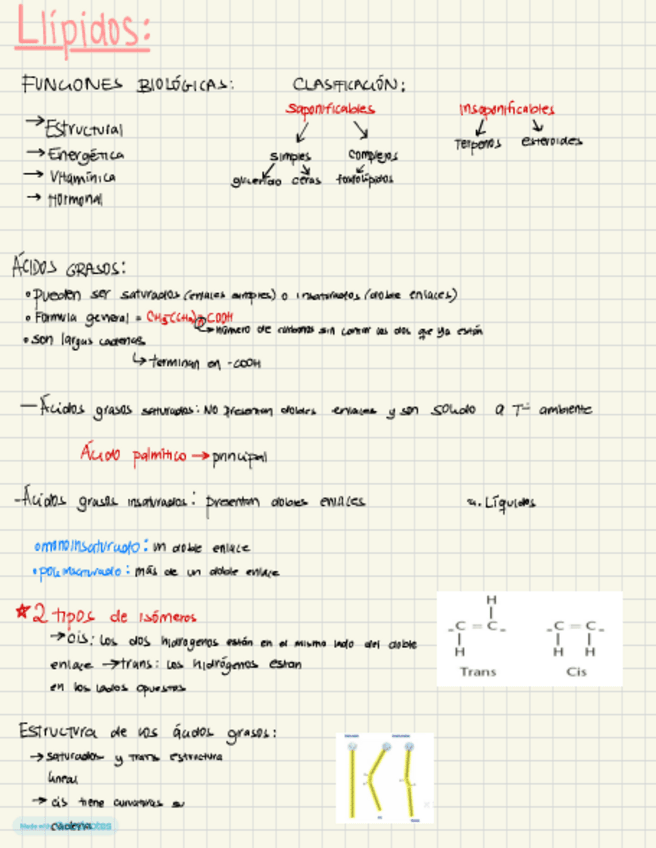 Llípidos:
FUNCIONES BIOLÓGICAS:
→ Estructural
→ Energética
→ Vitamínica
→ Hormonal
CLASIFICACIÓN:
Saponificables
simples complejos
ceras fosfolípidos
Insaponificables
Terpenos esteroides
ÁCIDOS GRASOS:
• Pueden ser saturados (enlaces simples) o insaturados (doble enlaces)
• Formula general =
↳ número de carbonos sin contar los dos que ya están
• son largas cadenas
↳ terminan en -COOH
— Ácidos grasos saturados: No presentan dobles enlaces y son solido a Tª ambiente
Ácido palmítico → principal
-Ácidos grasos insaturados: presentan dobles enlaces
Líquidos
• monoinsaturado: un doble enlace
• poliinsaturado: más de un doble enlace
★ 2 tipos de isómeros
→ cis: Los dos hidrogenos están en el mismo lado del doble
enlace → trans: Los hidrógenos estan
en los lados opuestos
H
-C = C-
H
Trans
-C = C-
H H
Cis
Estructura de los ácidos grasos:
→ saturados y trans estructura
lineal
→ cis tiene curvaturas su
cadena
Made with